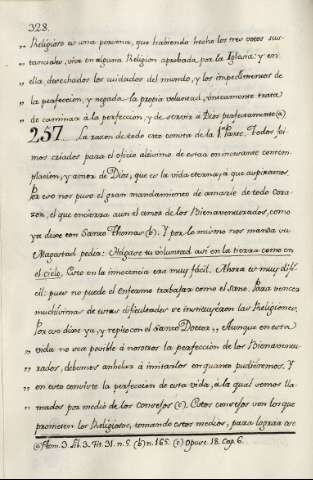 328.
„ Religioso es una persona, que habiendo hecho los tres votos sus-
„ tanciales, vive en alguna Religion aprobada por la Iglesia: y en
„ ella desechados los cuidados del mundo, y los impedimentos de
„ la perfeccion, y negada la propia voluntad, únicamente trata
„ de caminar a la perfeccion, y de servir a Dios perfectamente (a)
257 La razon de todo esto consta de la 1ª Parte. Todos fui-
mos criados para el oficio altisimo de estar en incesante contem-
placion, y amor de Dios, que es la vida eterna, ya que aspiramos.
Por eso nos puso el gran mandamiento de amarle de todo cora-
zon, el que encierra aun el amor de los Bienaventurados, como
ya dixe con Santo Thomas (b). Y por lo mismo nos manda su
Magestad pedir: Hágase tu voluntad asi en la tierra como en
el cielo. Esto en la inocencia era muy fácil. Ahora es muy difi-
cil: pues no puede el enfermo trabajar como el sano. Para vencer
muchisimas de estas dificultades se instituyéron las Religiones.
Por eso dixe ya, y repito con el Santo Doctor „ Aunque en esta
„ vida no sea posible á nosotros la perfeccion de los Bienaventu-
„ rados, debemos anhelar à imitarlos en quanto pudiéremos. Y
„ en esto consiste la perfeccion de esta vida, à la qual somos lla-
„ mados por medio de los consejos (c). Estos consejos son los que
prometen los Religiosos, tomando estos medios, para lograr ese
(a) Tom. 3. Lib. 3. Tit. 31. n. 5. (b) n. 165. (c) Opusc. 18. Cap. 6.